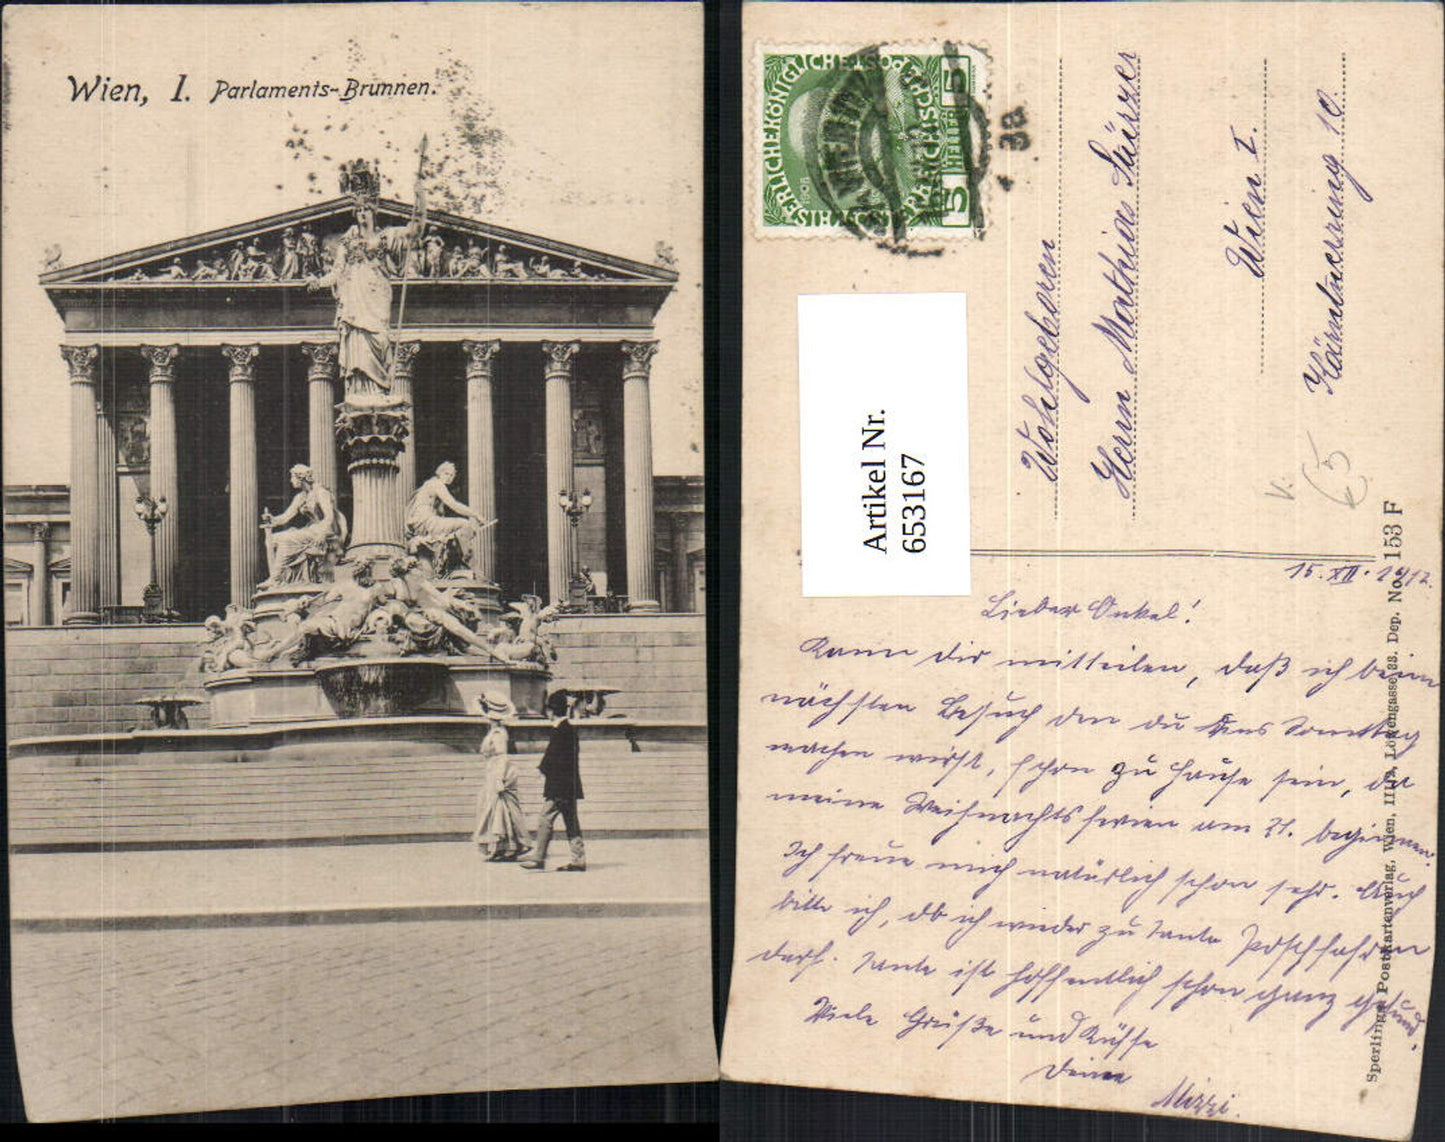 Wien, I. Parlaments-Brunnen.
KAISERLICHE KÖNIGLICHE ÖSTERREICHISCHE POST
5 HELLER 5
1908
38
Artikel Nr.
653167
Wohlgeboren
Herrn Mathias Sürzer
Wien I.
Kärntnerring 10.
Sperlings Postkartenverlag, Wien, III/3, Löwengasse 33. Dep. No. 153 F
15. XII. 1912.
Lieber Onkel!
Kann dir mitteilen, daß ich beim
nächsten Besuch den du uns Sonntag
machen wirst, schon zu Hause sein, da
meine Weihnachtsferien am 21. beginnen.
Ich freue mich natürlich schon sehr. Auch
bitte ich, ob ich wieder zu Tante
darf. Tante ist hoffentlich schon ganz gesund.
Viele Grüße und Küsse
Deine
Mizzi.